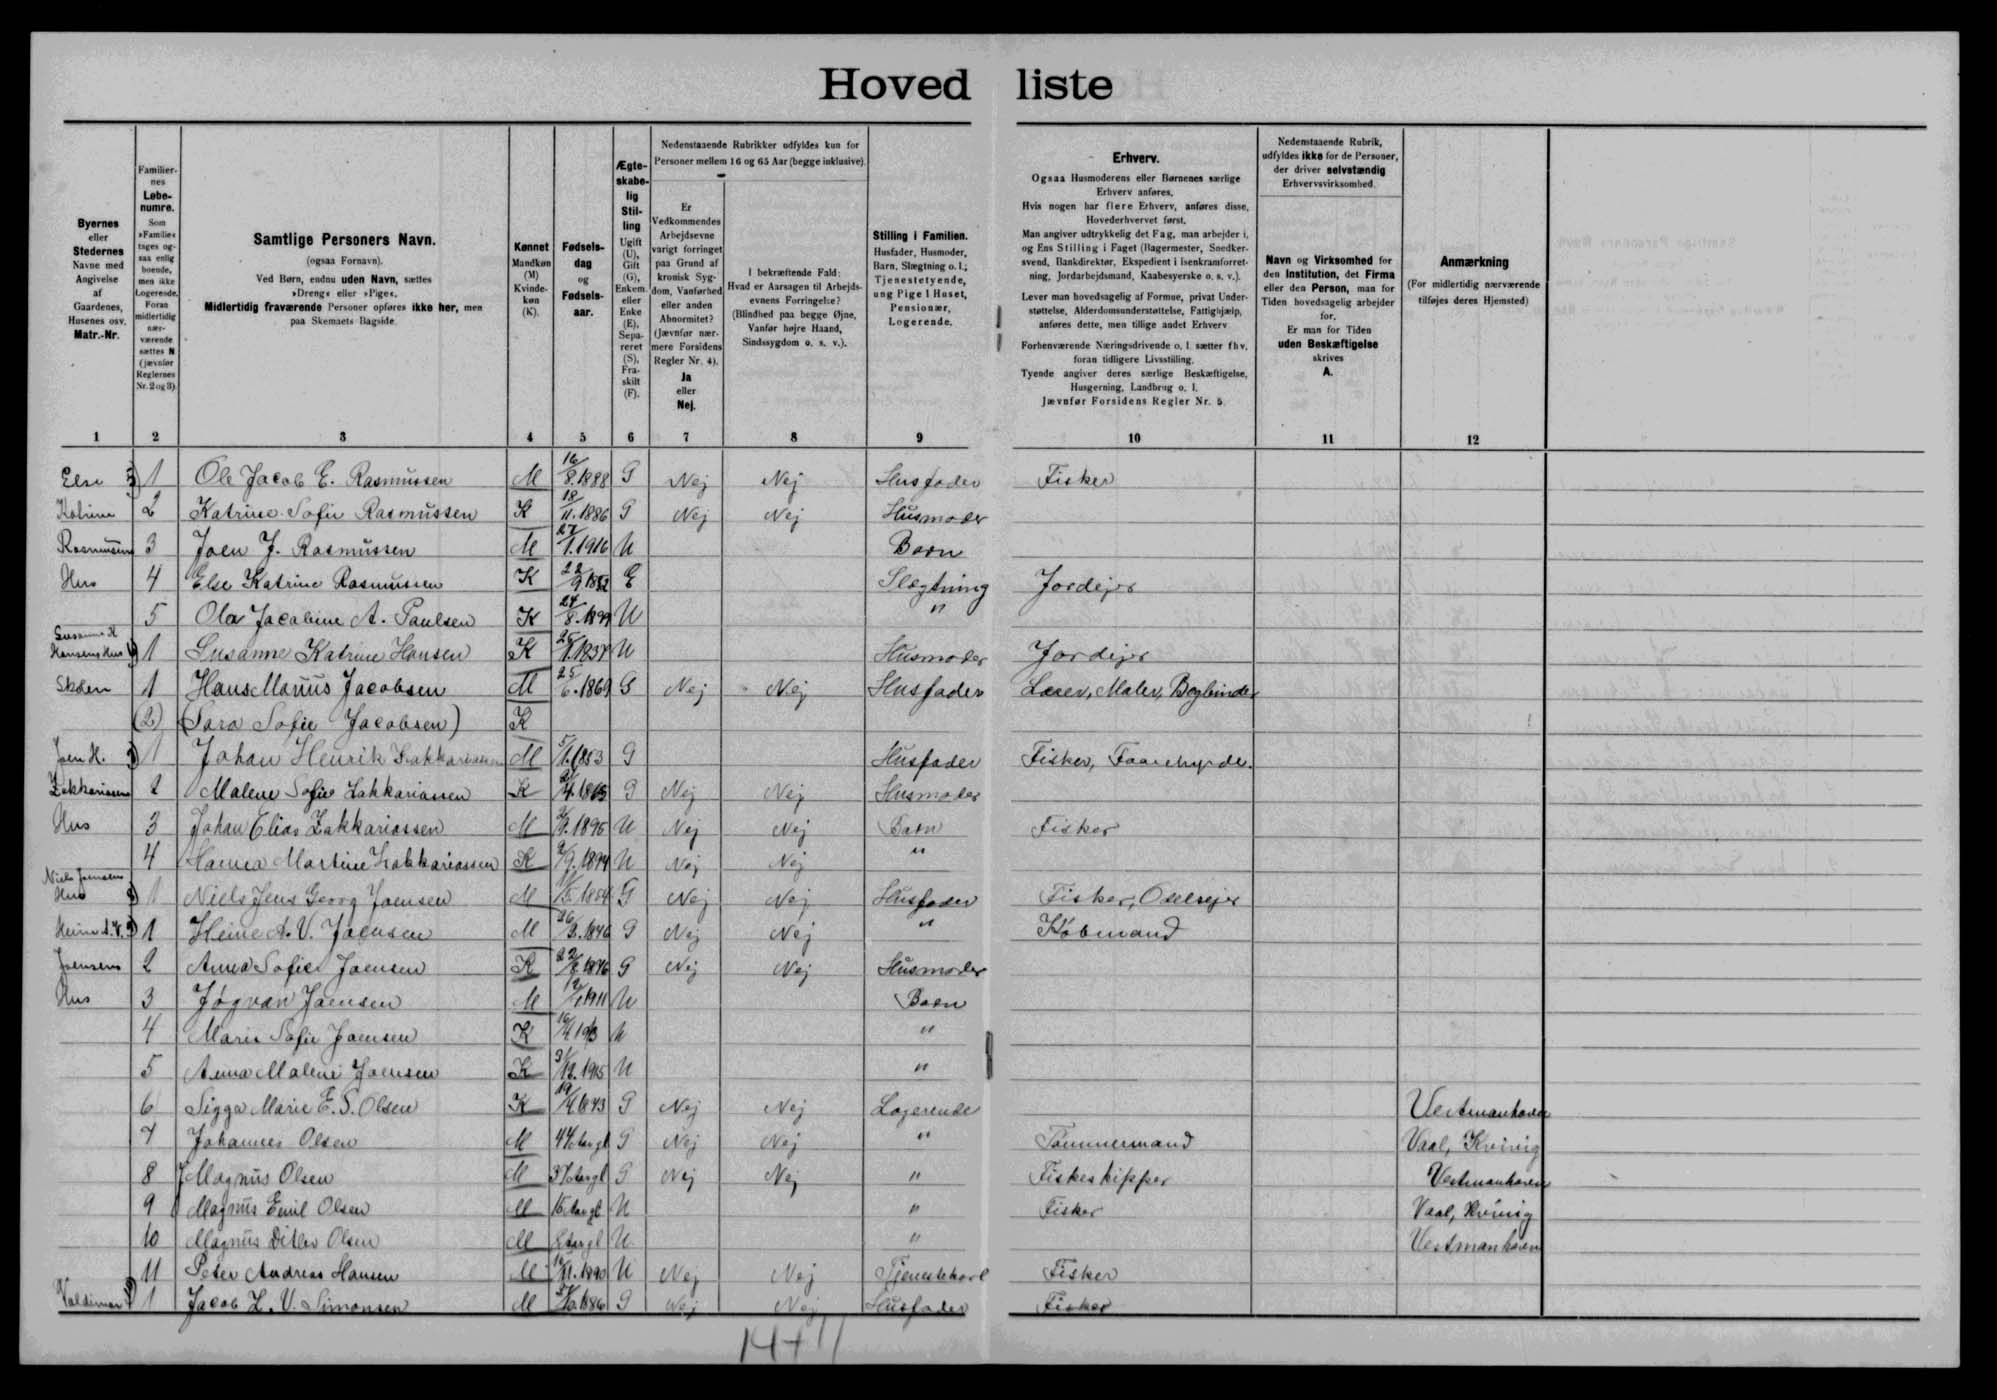 Hoved liste
Byernes
eller
Stedernes
Navne med
Angivelse
af
Gaardenes,
Husenes osv.
Matr.-Nr.
Familier-
nes
Løbe-
numre.
Som
»Familie«
tages og-
saa enlig
boende,
men ikke
Logerende.
Foran
midlertidig
nær-
værende
sættes N
(jævnfør
Reglernes
Nr. 2 og 3).
Samtlige Personers Navn.
(ogsaa Fornavn).
Ved Børn, endnu uden Navn, sættes
»Dreng« eller »Pige«.
Midlertidig fraværende Personer opføres ikke her, men
paa Skemaets Bagside.
Kønnet
Mandkøn
(M)
Kvinde-
køn
(K).
Fødsels-
dag
og
Fødsels-
aar.
Ægte-
skabe-
lig
Stil-
ling
Ugift
(U),
Gift
(G),
Enkem.
eller
Enke
(E),
Sepa-
reret
(S),
Fra-
skilt
(F).
Nedenstaaende Rubrikker udfyldes kun for
Personer mellem 16 og 65 Aar (begge inklusive).
Er
Vedkommendes
Arbejdsevne
varigt forringet
paa Grund af
kronisk Syg-
dom, Vanførhed
eller anden
Abnormitet?
(Jævnfør nær-
mere Forsidens
Regler Nr. 4).
Ja
eller
Nej.
I bekræftende Fald:
Hvad er Aarsagen til Arbejds-
evnens Forringelse?
(Blindhed paa begge Øjne,
Vanfør højre Haand,
Sindssygdom o. s. v.).
Stilling i Familien.
Husfader, Husmoder,
Barn, Slægtning o. l.;
Tjenestetyende,
ung Pige i Huset,
Pensionær,
Logerende.
Erhverv.
Ogsaa Husmoderens eller Børnenes særlige
Erhverv anføres.
Hvis nogen har flere Erhverv, anføres disse,
Hovederhvervet først.
Man angiver udtrykkelig det Fag, man arbejder i,
og Ens Stilling i Faget (Bagermester, Snedker-
svend, Bankdirektør, Ekspedient i Isenkramforret-
ning, Jordarbejdsmand, Kaabesyerske o. s. v.).
Lever man hovedsagelig af Formue, privat Under-
støttelse, Alderdomsunderstøttelse, Fattighjælp,
anføres dette, men tillige andet Erhverv
Forhenværende Næringsdrivende o. l. sætter fhv.
foran tidligere Livsstilling.
Tyende angiver deres særlige Beskæftigelse,
Husgerning, Landbrug o. l.
Jævnfør Forsidens Regler Nr. 5.
Nedenstaaende Rubrik,
udfyldes ikke for de Personer,
der driver selvstændig
Erhvervsvirksomhed.
Navn og Virksomhed for
den Institution, det Firma
eller den Person, man for
Tiden hovedsagelig arbejder
for.
Er man for Tiden
uden Beskæftigelse
skrives
A.
Anmærkning
(For midlertidig nærværende
tilføjes deres Hjemsted)
1 2 3 4 5 6 7 8 9 10 11 12
Else 1 Ole Jacob E. Rasmussen M 16/8.1888 G Nej Nej Husfader Fisker
Katrine 2 Katrine Sofie Rasmussen K 18/11.1886 G Nej Nej Husmoder
Rasmussens 3 Joen J. Rasmussen M 27/1.1916 U Barn
Hus 4 Else Katrine Rasmussen K 22/9 E Slægtning Jordejer
5 Ola Jacobine A. Paulsen K 24/8.1899 U "
Susanne K
Hansens Hus 1 Susanne Katrine Hansen K U Husmoder Jordejer
Skolen 1 Hans Marius Jacobsen M 25/6.1869 G Nej Nej Husfader Lærer, Maler, Bogbinder
(2) (Sara Sofie Jacobsen) K
Joen H. 1 Johan Henrik Zakkariassen M 5/1.1853 G Husfader Fisker, Faarehyrde.
Zakkariasens 2 Malene Sofie Zakkariassen K G Nej Nej Husmoder
Hus 3 Johan Elias Zakkariassen M U Nej Nej Barn Fisker
4 Hanna Martine Zakkariassen K U Nej Nej "
Niels Joensens
Hus 1 Niels Jens Georg Joensen M G Nej Nej Husfader Fisker,
Heine A. V. 1 Heine A. V. Joensen M G Nej Nej " Købmand
Joensens 2 Anna Sofie Joensen K G Nej Nej Husmoder
Hus 3 Jógvan Joensen M U Barn
4 Marie Sofie Joensen K U "
5 Anna Malene Joensen K U "
6 Sigga Marie E. S. Olsen K G Nej Nej Logerende Vestmanhavn
7 Johannes Olsen M G Nej Nej " Tømmermand Vaal, Kvivig
8 Magnus Olsen M G Nej Nej " Fiskeskipper Vestmanhavn
9 Magnus Emil Olsen M U " Fisker Vaal, Kvivig
10 Magnus Ditlev Olsen M U " Vestmanhavn
11 Peter Andreas Hansen M U Nej Nej Tjenestekarl Fisker
Valdimar 1 Jacob Z. V. Simonsen M G Nej Nej Husfader Fisker
14+11